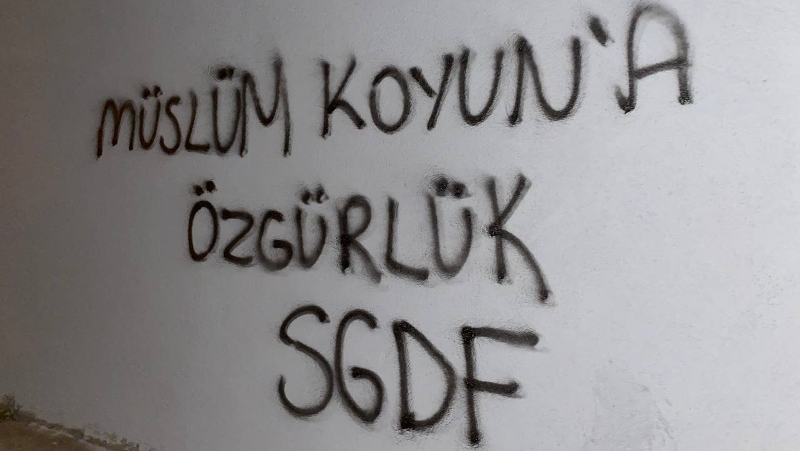 MÜSLÜM KOYUN'A
ÖZGÜRLÜK
SGDF